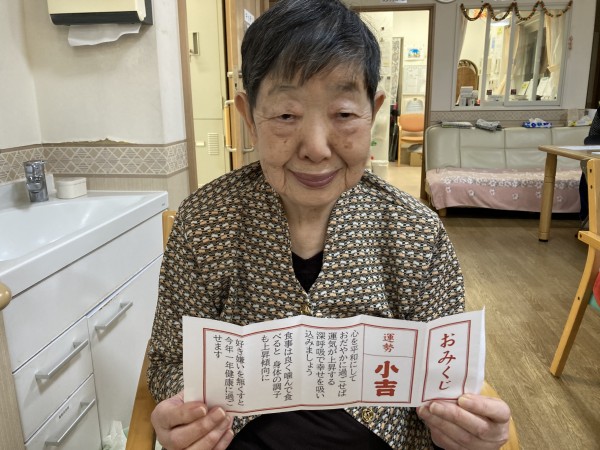 おみくじ
運勢
小吉
心を平和にして
おだやかに過ごせば
運気が上昇する
深呼吸で幸せを吸い
込みましょう
食事は良く噛んで食
べると 身体の調子
も上昇傾向に
好き嫌いを無くすと
今年一年健康に過ご
せます